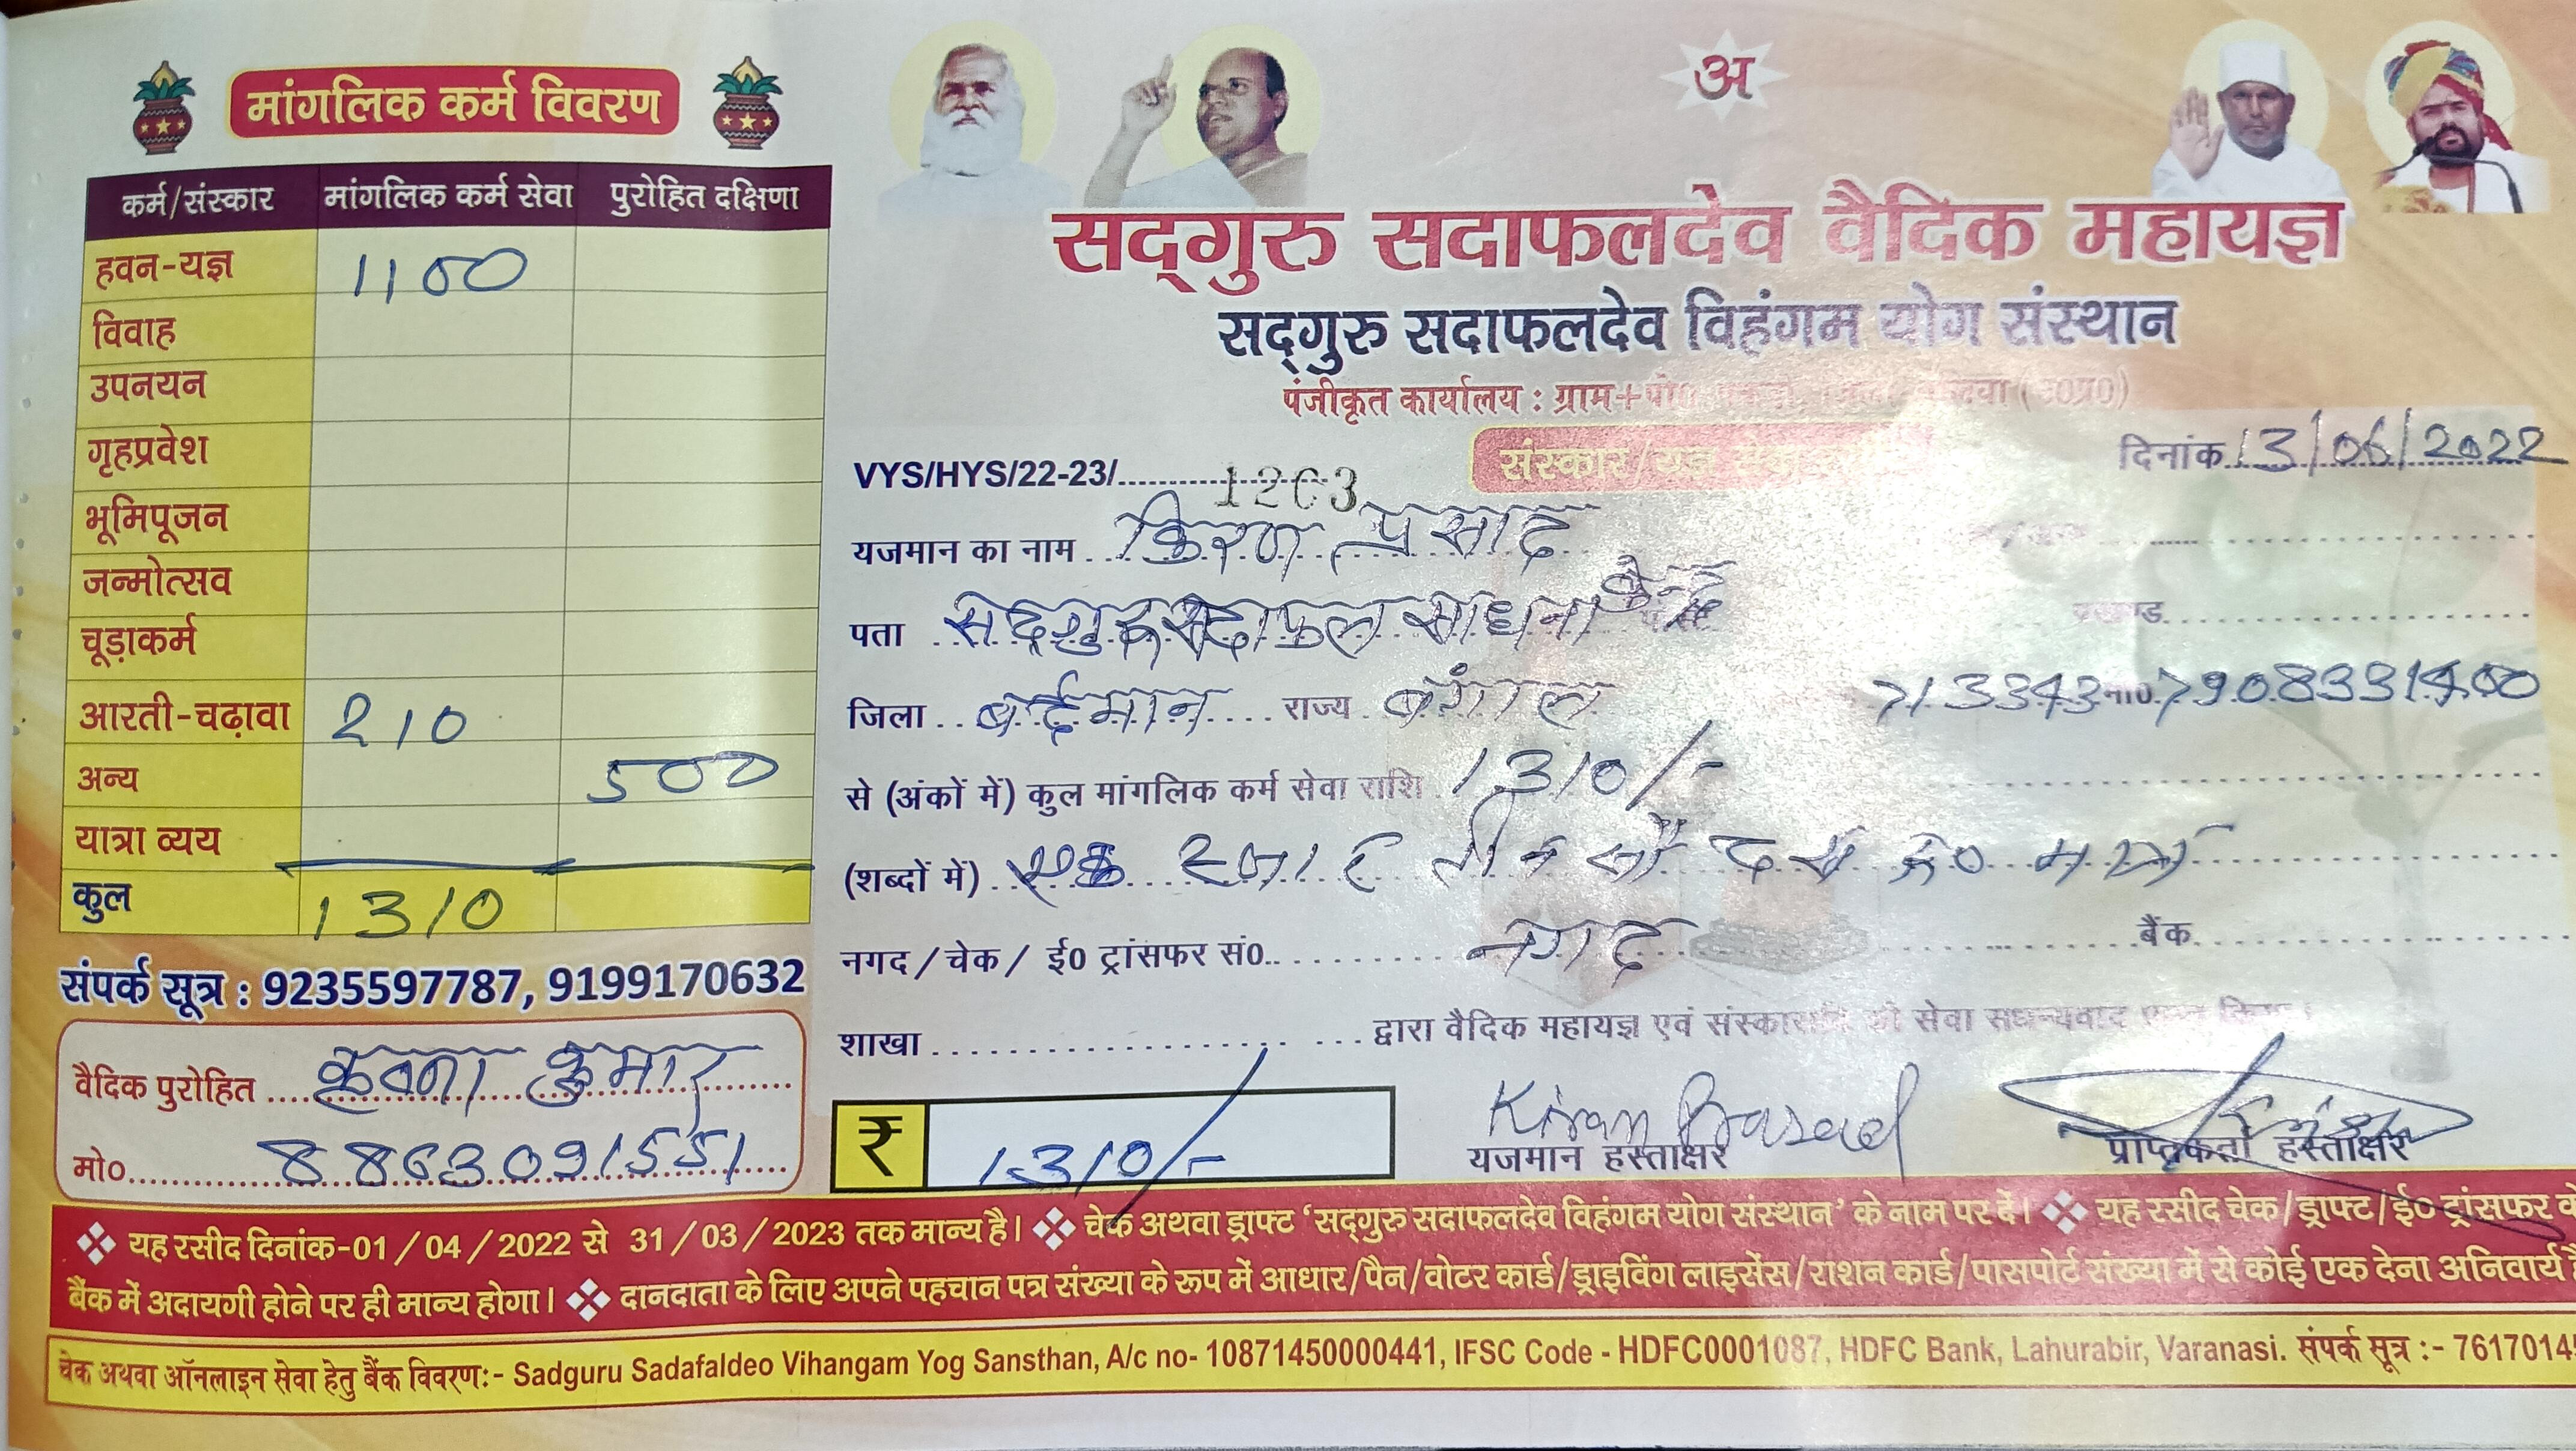 मांगलिक कर्म विवरण
कर्म/संस्कार मांगलिक कर्म सेवा पुरोहित दक्षिणा
हवन-यज्ञ 1100
विवाह
उपनयन
गृहप्रवेश
भूमिपूजन
जन्मोत्सव
चूड़ाकर्म
आरती-चढ़ावा 210
अन्य 500
यात्रा व्यय
कुल 1310
संपर्क सूत्र : 9235597787, 9199170632
वैदिक पुरोहित कृष्णा कुमार
मो० 8863091551
अ
सद्गुरु सदाफलदेव वैदिक महायज्ञ
सद्गुरु सदाफलदेव विहंगम योग संस्थान
पंजीकृत कार्यालय : ग्राम+पो०
संस्कार/यज्ञ
दिनांक 13/06/2022
VYS/HYS/22-23/ 1263
यजमान का नाम किरण प्रसाद
पता सदगुरु सदाफल साधना केन्द्र
जिला बर्दमान राज्य बंगाल 713343 मो०
से (अंकों में) कुल मांगलिक कर्म सेवा राशि 1310/-
(शब्दों में) एक हजार तीन सौ दस रू० मात्र
नगद / चेक / ई० ट्रांसफर सं०. नगद बैंक
शाखा द्वारा वैदिक महायज्ञ एवं सेवा सधन्यवाद
₹ 1310/-
Kiran Prasad
यजमान हस्ताक्षर प्राप्तकर्ता हस्ताक्षर
❖ यह रसीद दिनांक-01 / 04 / 2022 से 31 / 03 / 2023 तक मान्य है। ❖ चेक अथवा ड्राफ्ट ‘सद्गुरु सदाफलदेव विहंगम योग संस्थान’ के नाम पर दें। ❖ यह रसीद चेक/ड्राफ्ट/ई० ट्रांसफर
बैंक में अदायगी होने पर ही मान्य होगा। ❖ दानदाता के लिए अपने पहचान पत्र संख्या के रूप में आधार/पैन/वोटर कार्ड/ड्राइविंग लाइसेंस/राशन कार्ड/पासपोर्ट संख्या में से कोई एक देना अनिवार्य
चेक अथवा ऑनलाइन सेवा हेतु बैंक विवरण:- Sadguru Sadafaldeo Vihangam Yog Sansthan, A/c no- 10871450000441, IFSC Code - HDFC0001087, HDFC Bank, Lahurabir, Varanasi. संपर्क सूत्र :-